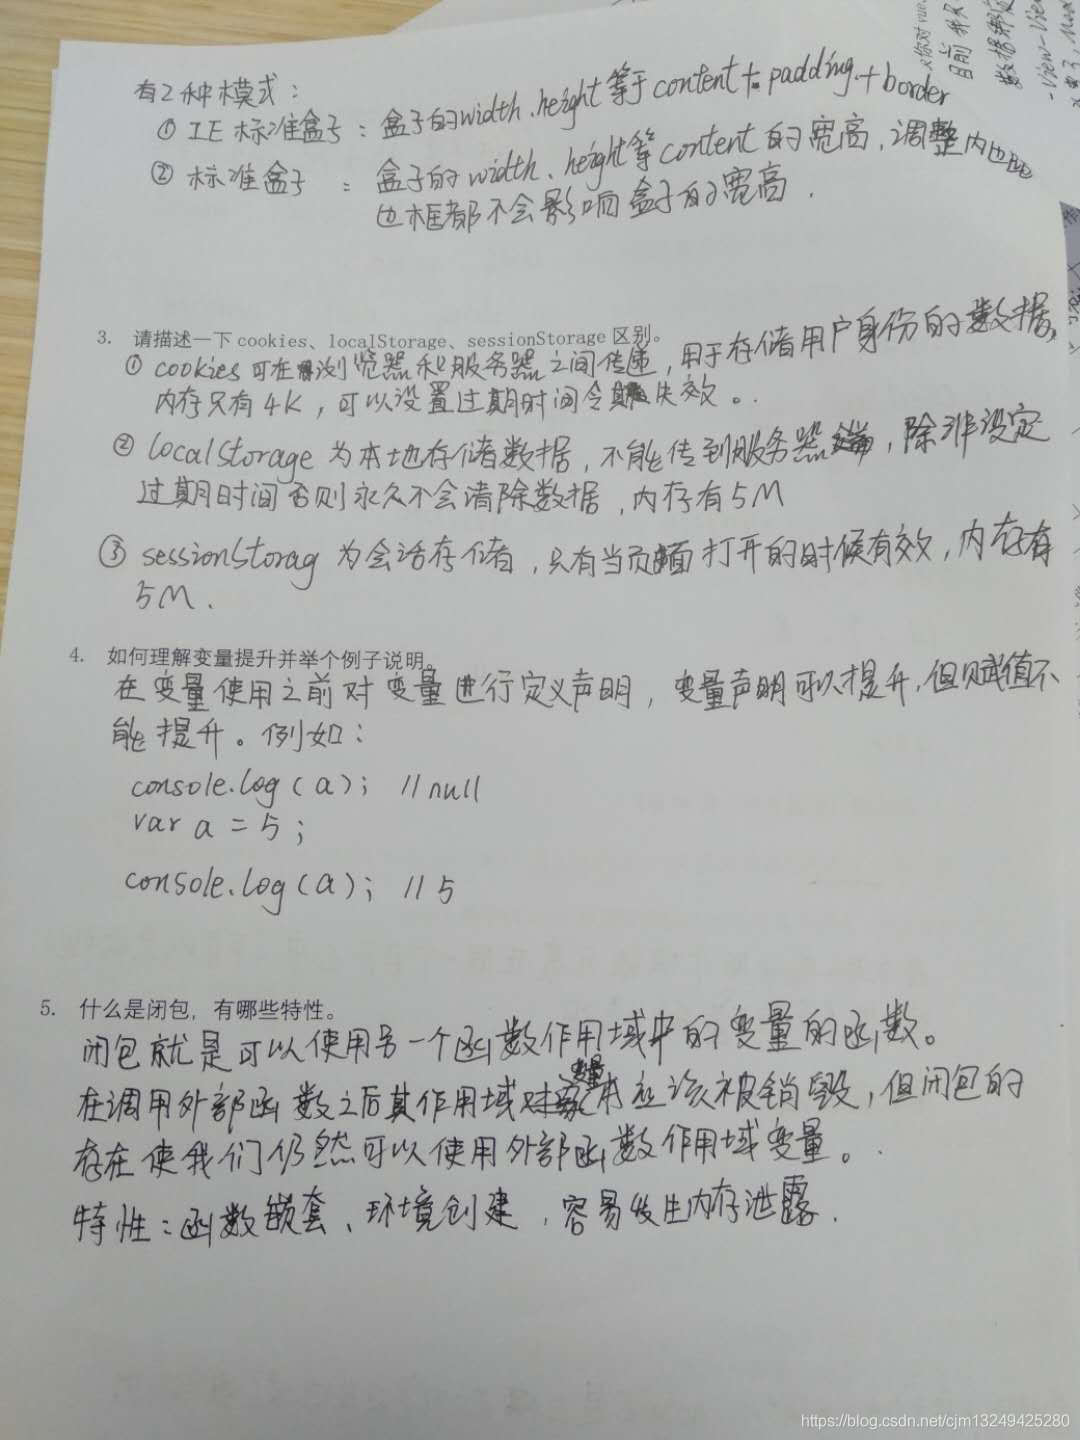 有2种模式：
① IE 标准盒子：盒子的width、height等于content + padding + border
② 标准盒子：盒子的width、height等content的宽高，调整内边距
边框都不会影响盒子的宽高．
3. 请描述一下 cookies、localStorage、sessionStorage 区别。
① cookies可在浏览器和服务器之间传递，用于存储用户身份的数据，
内存只有4K，可以设置过期时间令其失效。
② localStorage 为本地存储数据，不能传到服务器端，除非设定
过期时间否则永久不会清除数据，内存有5M
③ sessionStorag 为会话存储，只有当页面打开的时候有效，内存有
5M．
4. 如何理解变量提升并举个例子说明。
在变量使用之前对变量进行定义声明，变量声明可以提升，但赋值不
能提升。例如：
console.log(a); //null
var a = 5;
console.log(a); //5
5. 什么是闭包，有哪些特性。
闭包就是可以使用另一个函数作用域中的变量的函数。
在调用外部函数之后其作用域变量本应该被销毁，但闭包的
存在使我们仍然可以使用外部函数作用域变量。
特性：函数嵌套、环境创建，容易发生内存泄露．
你对vue
目前
数据绑定
-View-View
https://blog.csdn.net/cjm13249425280